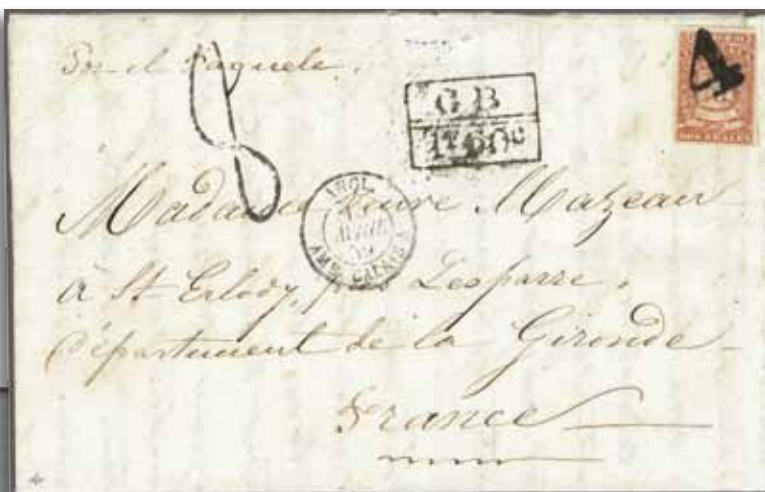 Por el Paquete.
8
G B
1F 60c
4
DOS REALES
ANGL.
AVRIL
AMB. CALAIS
Madame Veuve Mazeau
à St Esloöy, près Lesparre.
Département de la Gironde
France